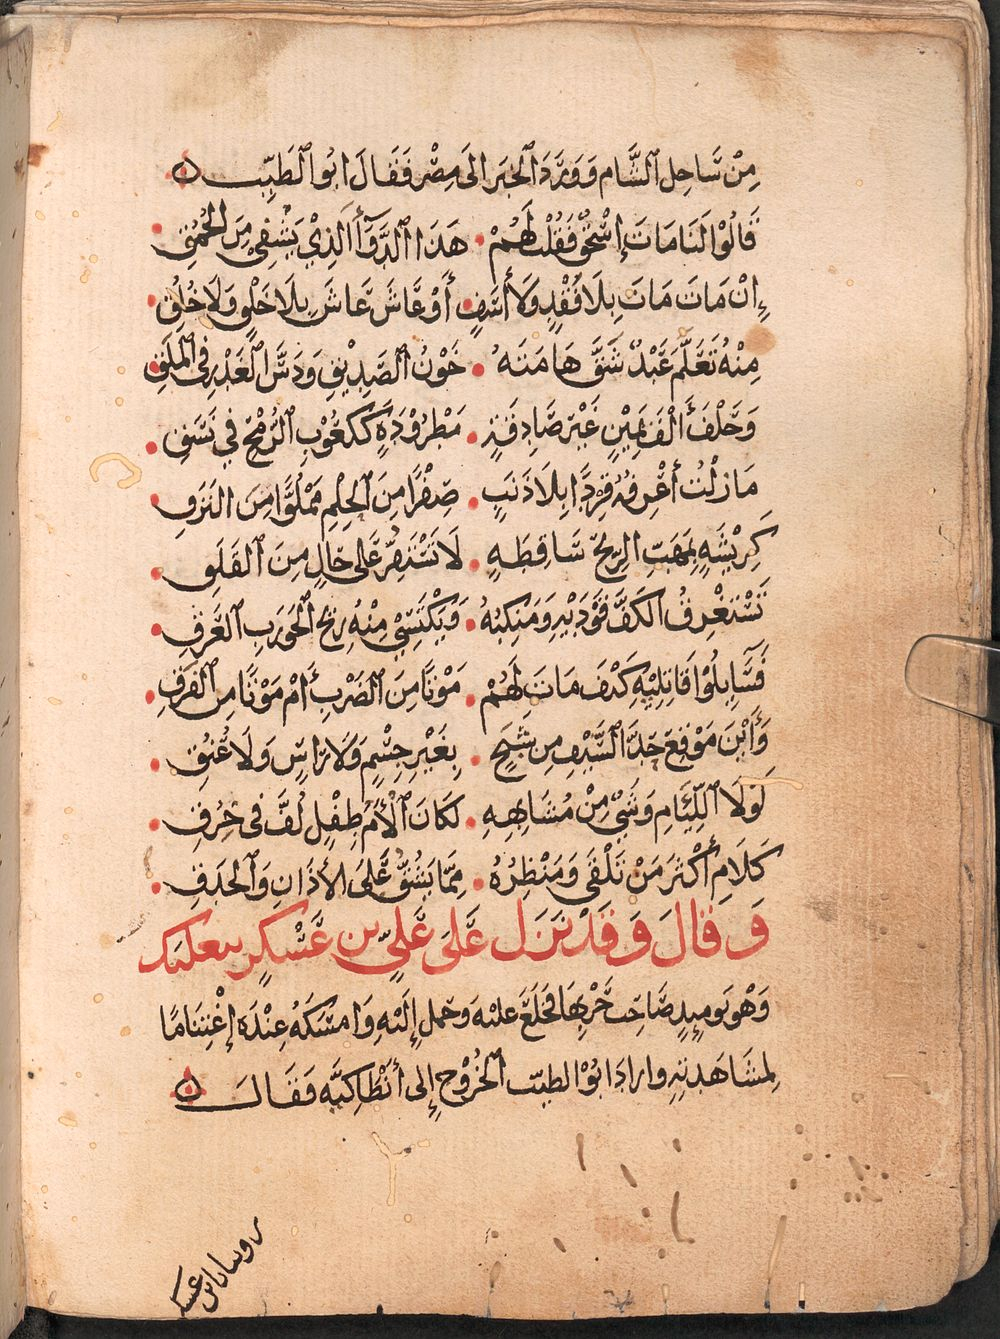 مِنْ سَاحِلِ ٱلشَّامِ وَوَرَدَ ٱلْخَبَر الَى مِصْر فَقَالَ ابُو ٱلطَيِّبِ
قَالُوْا لَنَا مَاتَ إِسْحٰقُ فَقُلْتُ لَهُمْ هَذَا ٱلدَّوَآءُ الَّذِيْ يَشْفِي مِنَ الْحُمُقِ
إِنْ مَاتَ مَاتَ بِلَا فَقْدٍ وَلَا أَسَفٍ أَوْ عَاشَ عَاشَ بِلَا خَلْقٍ وَلَا خُلُقِ
مِنْهُ تَعَلَّمَ عَبْدٌ شَقَّ هَامَتَهُ خَوْنُ ٱلصَّدِيْقِ وَدَسَّ ٱلْغَدْرِ فِي ٱلْمَلَقِ
وَحَلْفَ أَلْفِ يَمِيْنٍ غَيْرِ صَادِقَةٍ مَطْرُوْدَةٍ كَكُعُوْبِ ٱلرُّمْحِ فِي نَسَقِ
مَازِلْتُ أَعْرِفُهُ قِرْدًا بِلَا ذَنَبٍ صِفْرًا مِنَ ٱلْحِلْمِ مَمْلُوًّا مِنَ النَزَقِ
كَرِيْشَةٍ بِمَهَبِّ الرِيْحِ سَاقِطَةٍ لَا تَسْتَقِرُّ عَلَى حَالٍ مِنَ ٱلْقَلَقِ
تَسْتَغْرِقُ الكَفَّ فَوْدَيْهِ وَمَنْكِبَهُ وَيَكْتَسِيْ مِنْهُ رِيْحَ ٱلْجَوْرَبِ ٱلْعَرَقِ
فَسَآيِلُوْا قَاتِلِيْهِ كَيْفَ مَاتَ لَهُمْ مَوْتًا مِنَ ٱلضَرْبِ أَمْ مَوْتًا مِنَ ٱلْفَرَقِ
وَأَيْنَ مَوْقِعُ حَدِّ ٱلسَّيْفِ مِنْ شَبَحٍ بِغَيْرِ جِسْمٍ وَلَا رَاسٍ وَلَا عُنُقِ
لَوْلَا ٱللِّئَامِ وَشَيْءٌ مِنْ مُشَابِهِهِ لَكَانَ ٱلْأَمُ طِفْلٍ لُفَّ فِى خِرَقِ
كَلَامِ أَكْثَرَ مَنْ تَلْقَى وَمَنْظَرُهُ مِمَّا يَشُقُّ عَلَى الأَذَانِ وَٱلْحَدَقِ
وَقَالَ وَقَدْ نَزَلَ عَلَى عَلِيِّ بن عَسْكَرٍ ببعلبك
وَهُوَ يَوْمِيِذٍ صَاحِبُ حَرْبِهَا فَخَلَعَ عليْهِ وَحَمَل إِلَيْهِ وَامْسَكَهُ عِنْدَهُ إِغْتِنَامًا
لِمُشَاهَدَتِهِ واراد ابُوْ الطيّب ٱلخُرُوْجَ إِلى أَنْطَاكِيَّه فَقَالَ
روينا يا ابن عسكر